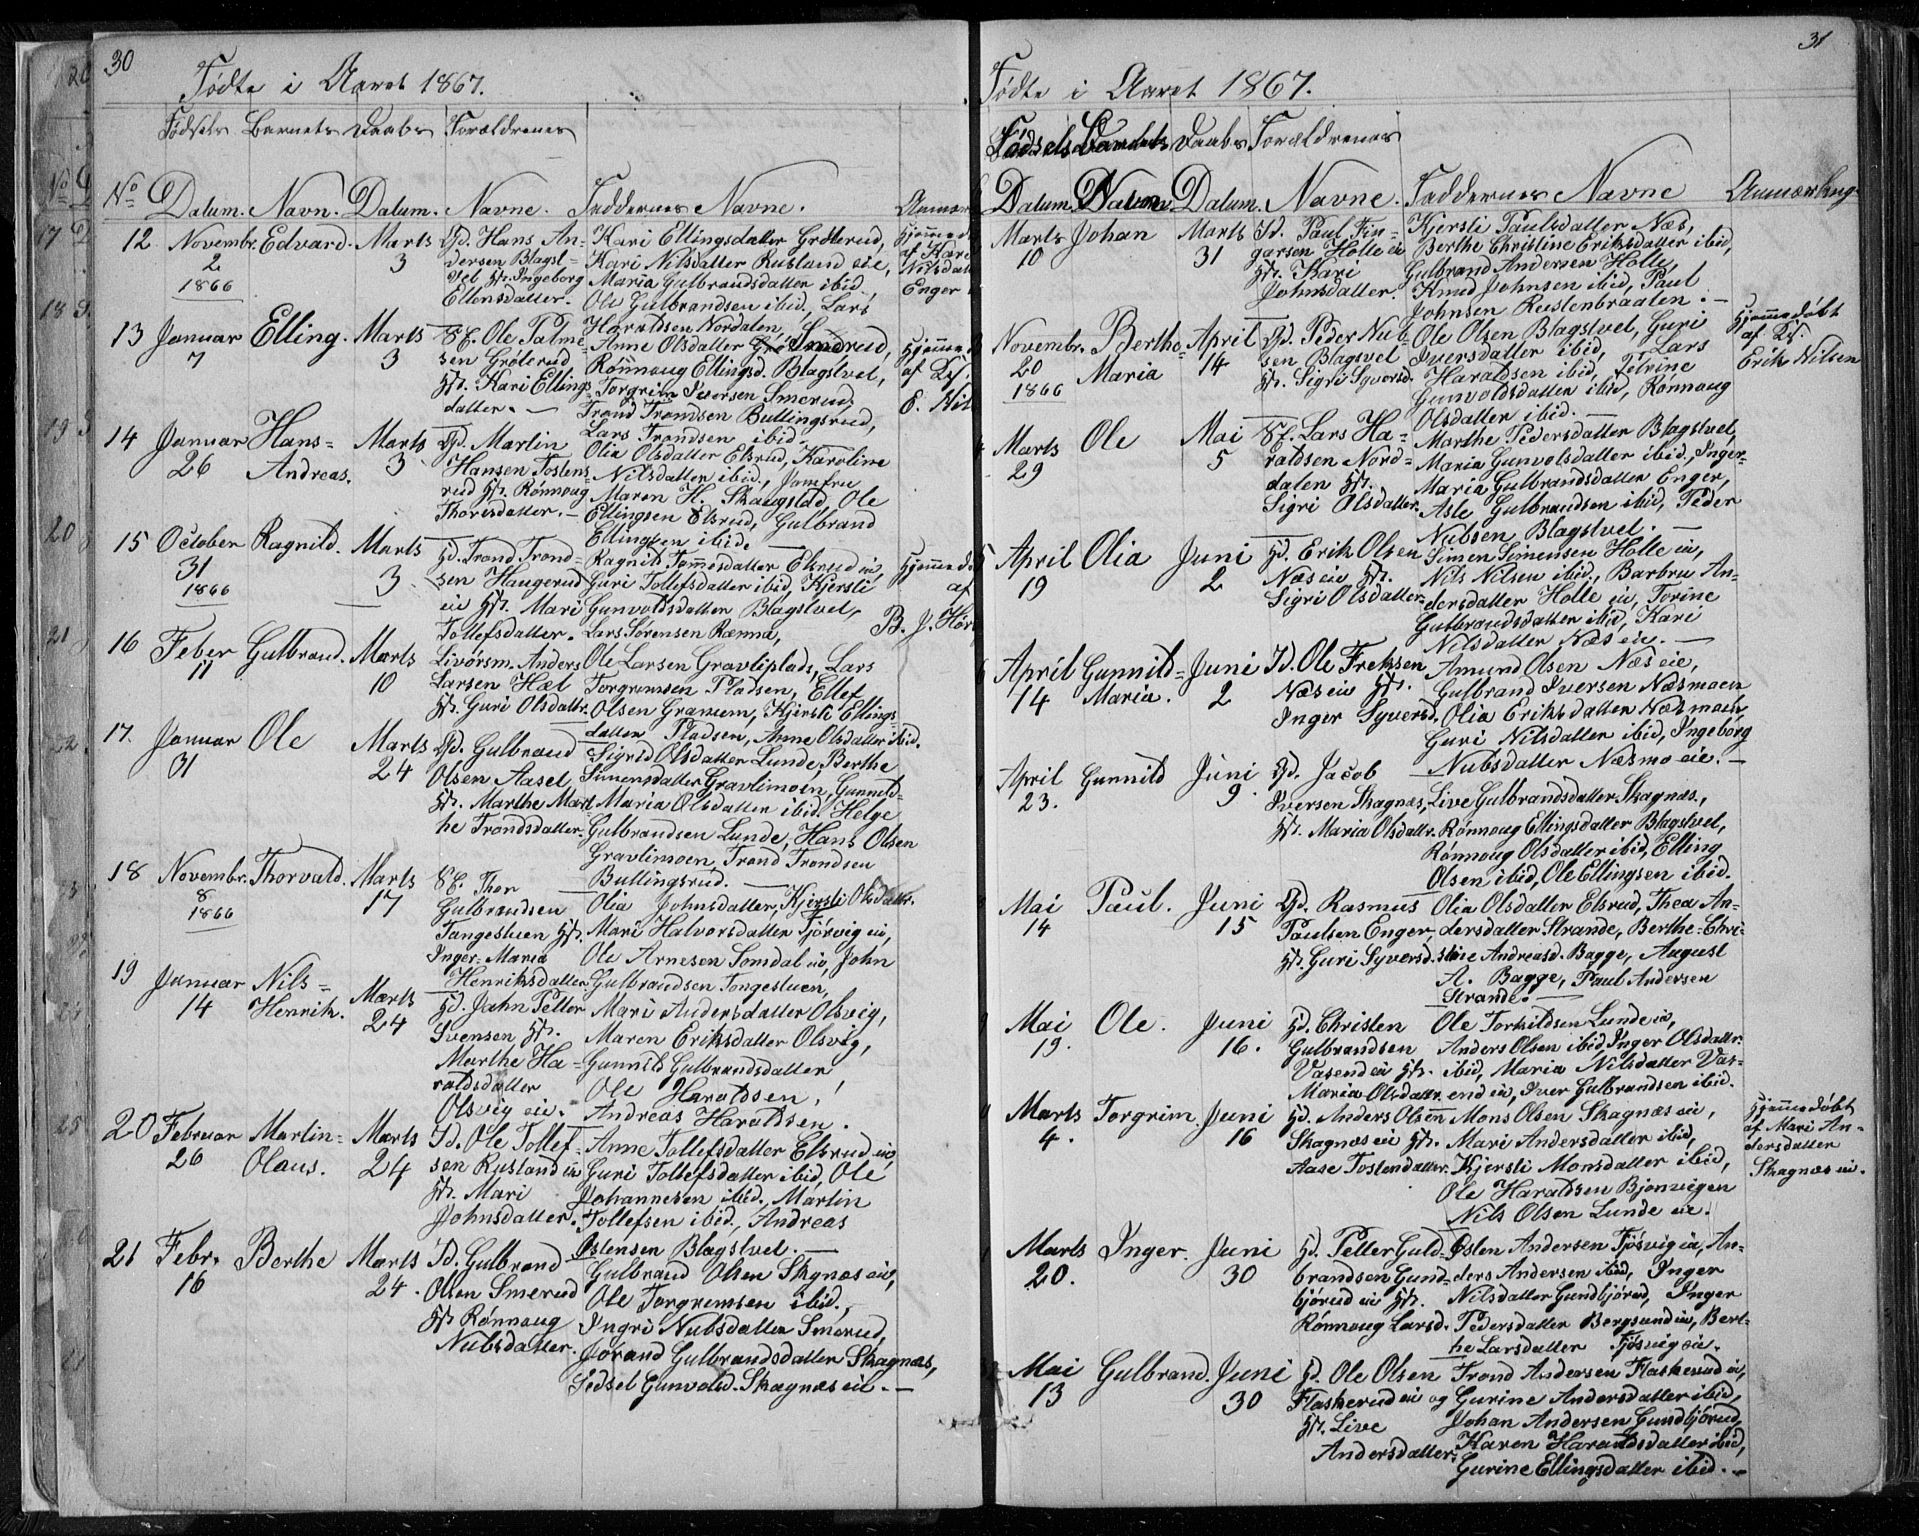 30
Fødte i Aaret 1867.
Fødsels Barnets Daabs Forældrenes
No Datum. Navn. Datum. Navne. Faddernes Navne.
12 Novembr. 2 1866 Edvard. Marts 3
Gd. Hans An-
dersen Blagst-
Ingeborg
Ellensdatter.
Kari Ellingsdatter Gröterud,
Kari Nilsdatter Rusland eie,
Maria Gulbrandsdatter ibid
Ole Gulbrandsen ibid., Lars
Haraldsen Nordalen,
Hjemmed
af Kari
Nilsdatt
Enger
13 Januar 7 Elling. Marts 3
Ole Palme-
sen Gröterud
Kari Ellings-
datter.
Anne Olsdatter Smerud,
Rønnoug Ellingsd. Blagstvet,
Torgrim Iversen Smerud,
Trond Trondsen Bullingsrud,
Lars Trondsen ibid.
Hjemme
af
E. Nil
14 Januar 26 Hans-
Andreas. Marts 3
Gd. Martin
Hansen Tostens-
rud Rønnoug
Thorisdatter.
Olia Olsdatter Elsrud, Karoline
Nilsdatter ibid., Jomfru
Maren H. Skaugstad, Ole
Ellingsen Elsrud, Gulbrand
Ellingsen ibid.
15 October 31 1866 Ragnild. Marts 3
Trond Trond-
sen Haugerud
eie Mari
Tollefsdatter.
Ragnild Tommesdatter Elsrud eie
Guri Tollefsdatter ibid, Kjersti
Gunvoldsdatter Blagstvet,
Lars Sørensen Ramna,
Hjemmed
af
B. J. Hør
16 Feber 11 Gulbrand. Marts 10
Anders
Larsen Hæl
Guri Olsdattr.
Ole Larsen Gravliplads, Lars
Torgremsen Pladsen, Ellef
Olsen Granum, Kjersti Ellings-
datter Pladsen, Anne Olsdatter ibid.
17. Januar 31 Ole Marts 24
Gd. Gulbrand
Olsen Aasel
Marthe Mart-
he Trondsdatter.
Sigrid Olsdatter Lunde, Berthe
Simensdatter Gravlimoen, Gunnild-
Maria Olsdatter ibid. Helge
Gulbrandsen Lunde, Hans Olsen
Gravlimoen, Trond Trondsen
Bullingsrud.
18 Novembr. 8 1866 Thorvald. Marts 17
Thor
Gulbrandsen
Tangestuen
Inger-Maria
Henriksdatter
Olia Johnsdatter, Kjersti Olsdattr.
Mari Halvorsdatter Fjösvig eie,
Ole Arnesen Somdal eie, John
Gulbrandsen Tongestuen,
19 Januar 14 Nils-
Henrik. Marts 24
John Petter
Svensen
Marthe Ha-
raldsdatter
Olsvig eie.
Mari Andersdatter Olsvig,
Maren Eriksdatter Olsvig,
Gunnild Gulbrandsdatter
Ole Haraldsen,
Andreas Haraldsen.
20 Februar 26 Martin-
Olaus. Marts 24
Id. Ole Tollef-
sen Rusland eie
Mari
Johnsdatter.
Anne Tollefsdatter Elsrud eie
Guri Tollefsdatter ibid, Ole
Johannesen ibid., Martin
Tollefsen ibid., Andreas
Ostensen Blagstvet.
21 Febr. 16 Berthe Marts 24.
Id. Gulbrand
Olsen Smerud
Rønnoug
Nubsdatter.
Gulbrand Olsen Skagnæs eie,
Ole Torgremsen ibid.,
Ingri Nubsdatter Smerud,
Jorand Gulbrandsdatter Skagnæs,
Sidsel Gunvolsd. Skagnæs eie.
31
Fødte i Aaret 1867.
Fødsels Barnets Daabs Forældrenes
Datum. Navn. Datum. Navne. Faddernes Navne Anmærkng.
Marts 10 Johan Marts 31
Id. Paul Fin-
garsen Holle eie
Kari
Johnsdatter.
Kjersti Paulsdatter Næs,
Berthe Christine Eriksdatter ibid,
Gulbrand Andersen Holle,
Knud Johnsen ibid, Paul
Johnsen Rustenbraaten.
Novembr. 20 1866 Berthe-
Maria April 14
Gd. Peder Nub-
sen Blagsvet
Sigri Syversd.
Ole Olsen Blagstvet, Guri
Iversdatter ibid, Lars
Haraldsen ibid, Petrine
Gunvoldsdatter ibid, Rønnoug
Olsdatter ibid.
Hjemmedøbt
af
Erik Nilsen
Marts 29 Ole Mai 5
Lars Ha-
raldsen Nord-
dalen
Sigri Olsdatter.
Marthe Pedersdatter Blagstvet,
Maria Gunvolsdatter ibid., Inger-
Maria Gulbrandsdatter Enger,
Asle Gulbrandsen ibid, Peder
Nubsen Blagstvet.
April 19 Olia Juni 2
Erik Olsen
Næs eie
Sigri Olsdatter.
Simen Simensen Holle eie,
Nils Nilsen ibid., Barbru An-
dersdatter Holle eie, Torine
Gulbrandsdatter ibid, Kari
Nilsdatter Næs eie.
April 14 Gunnild-
Maria. Juni 2
Id. Ole Freksen
Næs eie
Inger Syversd.
Amund Olsen Næs eie,
Gulbrand Iversen Næsmoen,
Olia Eriksdatter Næsmoen,
Guri Nilsdatter ibid, Ingeborg
Nubsdatter Næsmo eie.
April 23. Gunnild Juni 9.
Gd. Jacob
Iversen Skagnæs,
Maria Olsdattr.
Live Gulbrandsdatter Skagnæs,
Rønnoug Ellingsdatter Blagstvet,
Rønnoug Olsdatter ibid, Elling
Olsen ibid, Ole Ellingsen ibid.
Mai 14 Paul. Juni 15
Gd. Rasmus
Paulsen Enger,
Guri Syversd.
Olia Olsdatter Elsrud, Thea An-
dersdatter Strande, Berthe-Chri-
stine Andreasd. Bagge, August
A. Bagge, Paul Andersen
Strande.
Mai 19. Ole. Juni 16.
Christen
Gulbrandsen
Vasend eie
Maria Olsdattr.
Ole Torkildsen Lunde eie,
Anders Olsen ibid, Inger Olsdattr.
ibid, Maria Nilsdatter Vas-
end eie, Iver Gulbrandsen ibid.
Marts 4. Torgrim. Juni 16
Anders Olsen
Skagnæs eie
Aase Tostendatter.
Mons Olsen Skagnæs eie,
Mari Andersdatter ibid,
Kjersti Monsdatter ibid,
Ole Haraldsen Bjonvigen
Nils Olsen Lunde eie.
Hjemmedøbt
af Mari An-
dersdatter
Skagnæs eie.
Marts 20. Inger. Juni 30
Petter Guld-
brandsen Gund-
bjørud eie
Rønnoug Larsd.
Østen Andersen Fjösvig eie, An-
ders Andersen ibid, Inger
Nilsdatter Gundbjörud, Inger
Pedersdatter Bergsund eie, Bert-
he Larsdatter Fjösvig eie.
Mai 13 Gulbrand. Juni 30
Ole Olsen
Flaskerud eie og
Live
Andersdatter.
Trond Andersen Flaskerud eie,
Gurine Andersdatter ibid,
Johan Andersen Gundbjörud,
Karen Haraldsdatter ibid,
Gurine Ellingsdatter ibid.